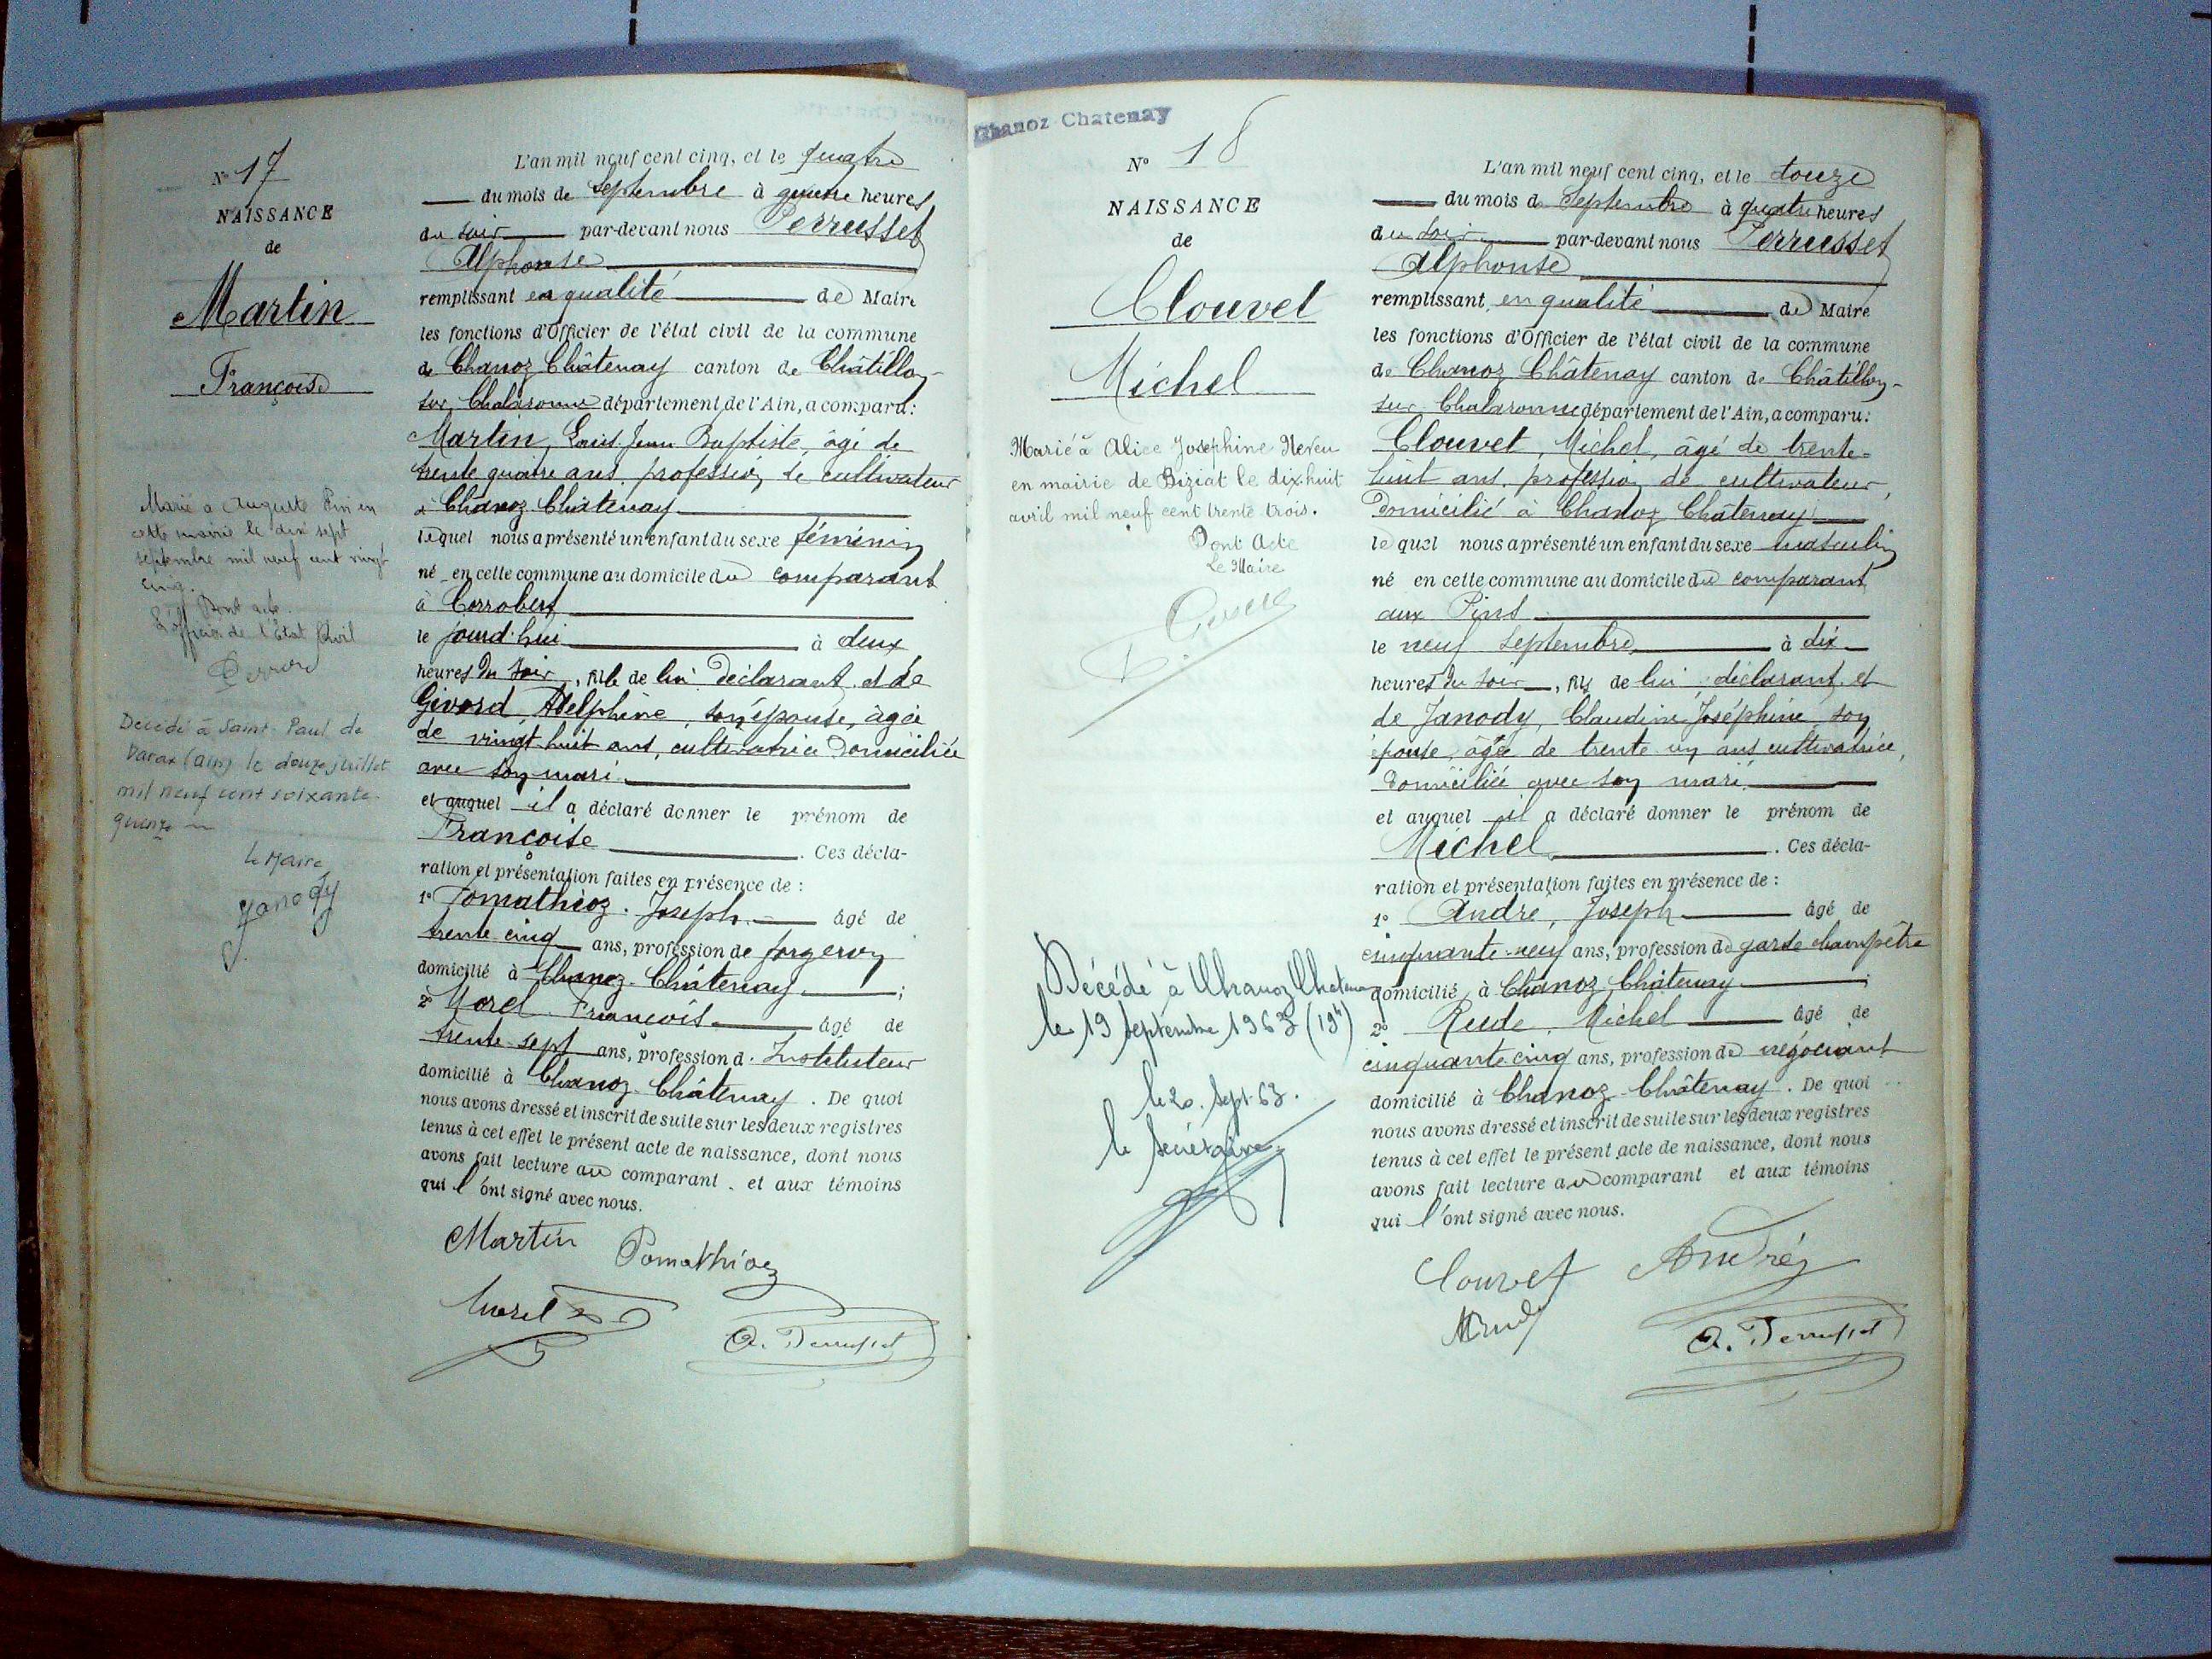 N° 17
NAISSANCE
de
Martin
Françoise
Marié à Auguste Pin en
cette mairie le dix sept
septembre mil neuf cent vingt
cinq.
Dont acte.
L'officier de l'État Civil
Perrard
Décédé à Saint Paul de
Varax (Ain) le douze juillet
mil neuf cent soixante
quinze
le Maire
Janody
L'an mil neuf cent cinq, et le quatre
du mois de Septembre à quatre heures
du soir par-devant nous Perrusset
Alphonse
remplissant en qualité de Maire
les fonctions d'Officier de l'état civil de la commune
de Chanoz Châtenay canton de Châtillon-
sur Chalaronne département de l'Ain, a comparu:
Martin, Louis Jean Baptiste, âgé de
trente quatre ans, profession de cultivateur
à Chanoz-Châtenay
lequel nous a présenté un enfant du sexe féminin
né en cette commune au domicile du comparant
à Corrobert
le jourd'hui à deux
heures du soir, fille de lui déclarant et de
Givord, Adelphine, son épouse, âgée
de vingt-huit ans, cultivatrice domiciliée
avec son mari
et auquel il a déclaré donner le prénom de
Françoise. Ces décla-
ration et présentation faites en présence de :
1° Pomathioz. Joseph. âgé de
trente cinq ans, profession de forgeron
domicilié à Chanoz-Châtenay ;
2° Morel François âgé de
trente-sept ans, profession d. Instituteur
domicilié à Chanoz-Châtenay. De quoi
nous avons dressé et inscrit de suite sur les deux registres
tenus à cet effet le présent acte de naissance, dont nous
avons fait lecture au comparant. et aux témoins
qui l'ont signé avec nous.
Martin Pomathioz
Morel A. Perrusset
Chanoz Chatenay
N° 18
NAISSANCE
de
Clouvet
Michel
Marié à Alice Joséphine Neveu
en mairie de Biziat le dix-huit
avril mil neuf cent trente trois.
Dont Acte
Le Maire
Décédé à Chanoz Chatenay
le 19 septembre 1963 (19h)
le 20. Sept 63.
le Secrétaire
L'an mil neuf cent cinq, et le douze
du mois de Septembre à quatre heures
du soir par-devant nous Perrusset
Alphonse
remplissant en qualité de Maire
les fonctions d'Officier de l'état civil de la commune
de Chanoz Châtenay canton de Châtillon-
sur Chalaronne département de l'Ain, a comparu:
Clouvet, Michel, âgé de trente-
huit ans, profession de cultivateur,
domicilié à Chanoz Châtenay
le quel nous a présenté un enfant du sexe masculin
né en cette commune au domicile du comparant
aux Pins
le neuf septembre à dix
heures du soir, fils de lui déclarant et
de Janody, Claudine Joséphine, son
épouse, âgée de trente un ans cultivatrice,
domiciliée avec son mari
et auquel il a déclaré donner le prénom de
Michel. Ces décla-
ration et présentation faites en présence de :
1° André, Joseph âgé de
cinquante-neuf ans, profession de garde champêtre
domicilié à Chanoz Châtenay ;
2° Rude, Michel âgé de
cinquante cinq ans, profession de négociant
domicilié à Chanoz-Châtenay. De quoi
nous avons dressé et inscrit de suite sur les deux registres
tenus à cet effet le présent acte de naissance, dont nous
avons fait lecture au comparant et aux témoins
qui l'ont signé avec nous.
Clouvet André
A. Perrusset